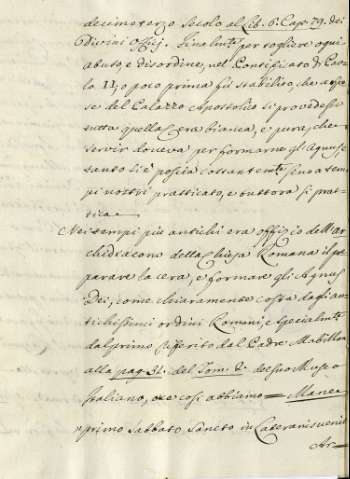 decimoterzo Secolo al Lib. 6. Cap. 79. dei
Divini Offizj. Finalmte per togliere ogni
abuso, e disordine, nel Pontificato di Pao
lo II, o poco prima fù stabilito, che a spe
se del Palazzo Apostolico si provedesse
tutta quella Cera bianca, e pura, che
servir doveva per formarne gli Agnus, e
tanto si è poscia costantemte sino a tem
pi nostri pratticato, e tuttora si prat
tica.
Nei tempi più antichi era offizio dell'Ar
chidiacono della Chiesa Romana il pre
parare la cera, e formare gli Agnus
Dei, come chiaramente costa dagli an
tichissimi ordini Romani, e specialmte
dal primo riferito dal Padre Mabillon
alla pag. 31. del Tom. 2. del suo Museo
Italiano, ove così abbiamo = Mane
primo Sabbato Sancto in Lateranis venit
Ar=